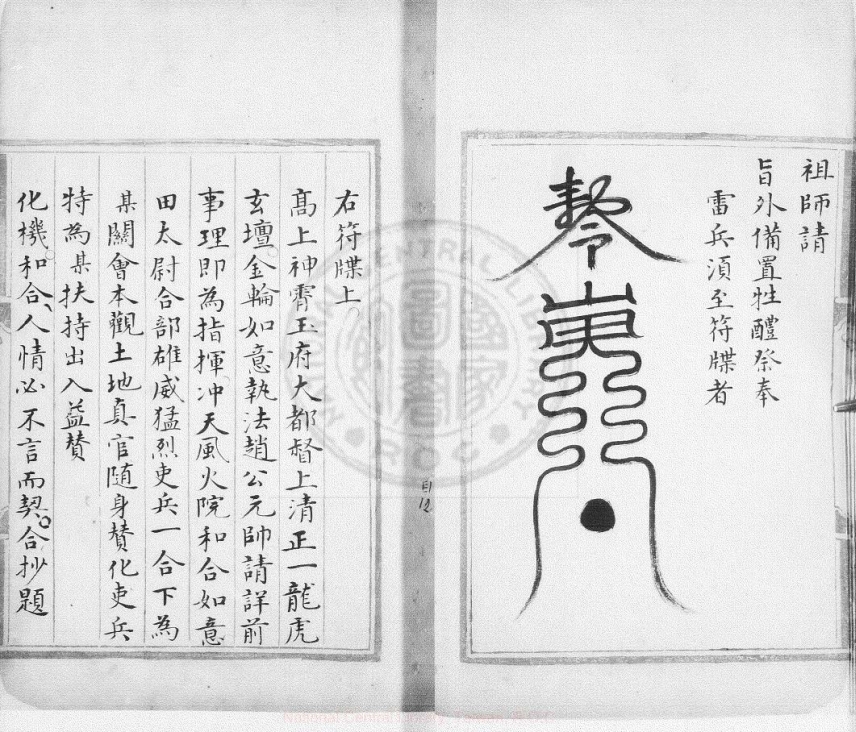 祖師請
旨外備置牲醴祭奉
雷兵湏至符牒者
右符牒上
髙上神霄玉府大都督上清正一龍虎
玄壇金輪如意執法趙公元帥請詳前
事理即為指揮冲天風火院和合如意
田太尉合部雄威猛烈吏兵一合下為
某關會本觀土地真官随身賛化吏兵
特為某扶持出入益賛
化機和合人情必不言而契合抄題
E1
12
NATIONAL CENTRAL LIBRARY
ROC
國家圖書館